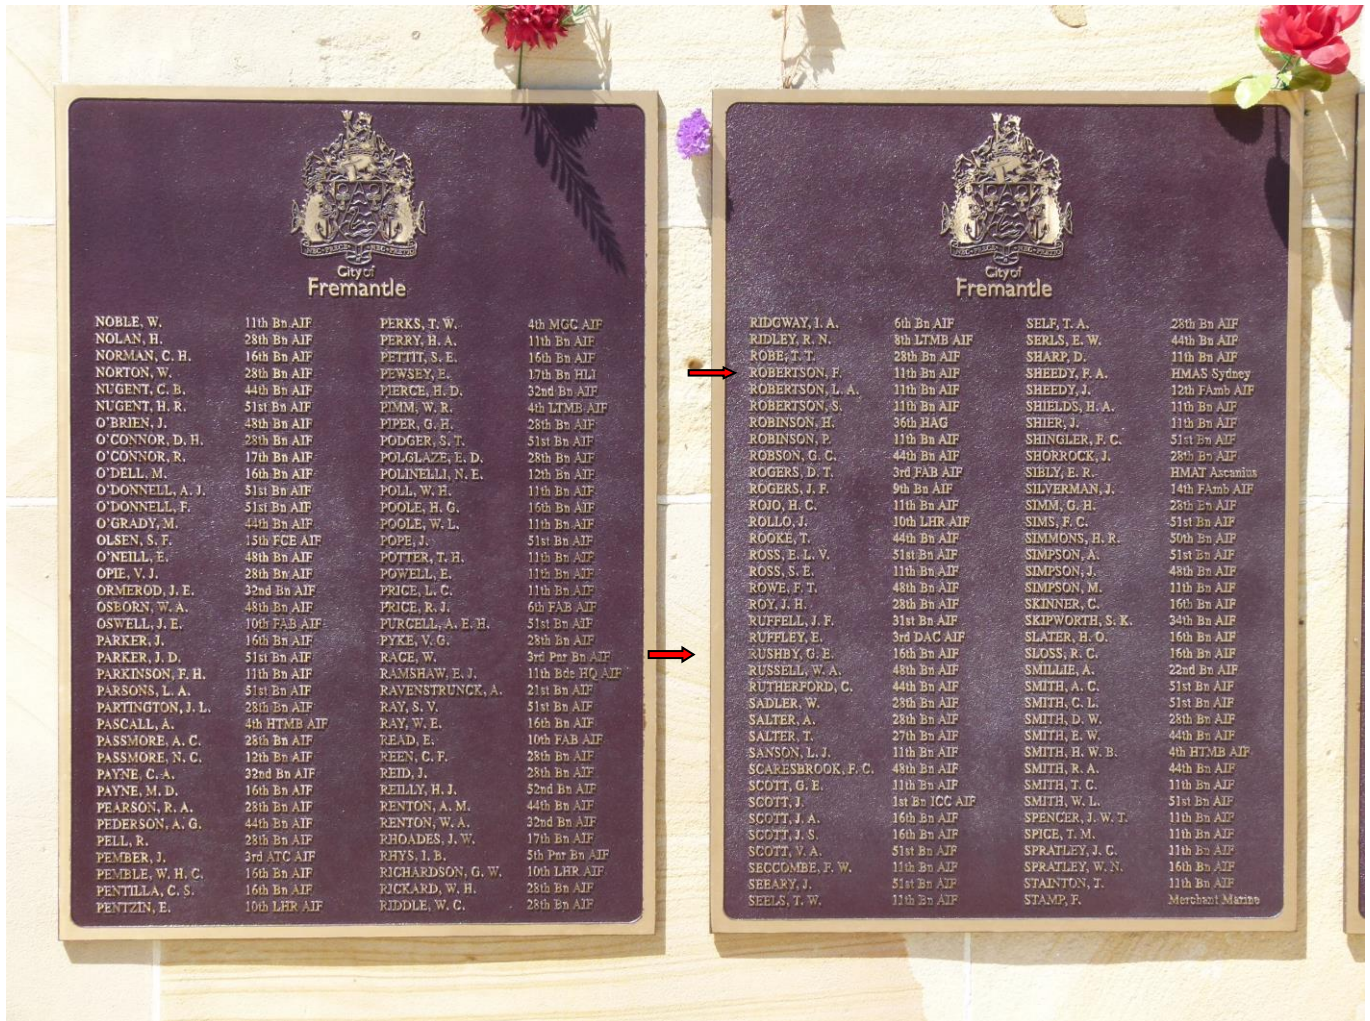 NEC PRECE NEC PRETIO
City of
Fremantle
NOBLE, W. 11th Bn AIF PERKS, T. W. 4th MGC AIF
NOLAN, H. 28th Bn AIF PERRY, H. A. 11th Bn AIF
NORMAN, C. H. 16th Bn AIF PETTIT, S. E. 16th Bn AIF
NORTON, W. 28th Bn AIF PEWSEY, E. 17th Bn HLI
NUGENT, C. B. 44th Bn AIF PIERCE, H. D. 32nd Bn AIF
NUGENT, H. R. 51st Bn AIF PIMM, W. R. 4th LTMB AIF
O'BRIEN, J. 48th Bn AIF PIPER, G. H. 28th Bn AIF
O'CONNOR, D. H. 28th Bn AIF PODGER, S. T. 51st Bn AIF
O'CONNOR, R. 17th Bn AIF POLGLAZE, E. D. 28th Bn AIF
O'DELL, M. 16th Bn AIF POLINELLI, N. E. 12th Bn AIF
O'DONNELL, A. J. 51st Bn AIF POLL, W. H. 11th Bn AIF
O'DONNELL, F. 51st Bn AIF POOLE, H. G. 16th Bn AIF
O'GRADY, M. 44th Bn AIF POOLE, W. L. 11th Bn AIF
OLSEN, S. F. 15th FCE AIF POPE, J. 51st Bn AIF
O'NEILL, E. 48th Bn AIF POTTER, T. H. 11th Bn AIF
OPIE, V. J. 28th Bn AIF POWELL, E. 11th Bn AIF
ORMEROD, J. E. 32nd Bn AIF PRICE, L. C. 11th Bn AIF
OSBORN, W. A. 48th Bn AIF PRICE, R. J. 6th FAB AIF
OSWELL, J. E. 10th FAB AIF PURCELL, A. E. H. 51st Bn AIF
PARKER, J. 16th Bn AIF PYKE, V. G. 28th Bn AIF
PARKER, J. D. 51st Bn AIF RAGE, W. 3rd Pnr Bn AIF
PARKINSON, F. H. 11th Bn AIF RAMSHAW, E. J. 11th Bde HQ AIF
PARSONS, L. A. 51st Bn AIF RAVENSTRUNCK, A. 21st Bn AIF
PARTINGTON, J. L. 28th Bn AIF RAY, S. V. 51st Bn AIF
PASCALL, A. 4th HTMB AIF RAY, W. E. 16th Bn AIF
PASSMORE, A. C. 28th Bn AIF READ, E. 10th FAB AIF
PASSMORE, N. C. 12th Bn AIF REEN, C. F. 28th Bn AIF
PAYNE, C. A. 32nd Bn AIF REID, J. 28th Bn AIF
PAYNE, M. D. 16th Bn AIF REILLY, H. J. 52nd Bn AIF
PEARSON, R. A. 28th Bn AIF RENTON, A. M. 44th Bn AIF
PEDERSON, A. G. 44th Bn AIF RENTON, W. A. 32nd Bn AIF
PELL, R. 28th Bn AIF RHOADES, J. W. 17th Bn AIF
PEMBER, J. 3rd ATC AIF RHYS, I. B. 5th Pnr Bn AIF
PEMBLE, W. H. C. 16th Bn AIF RICHARDSON, G. W. 10th LHR AIF
PENTILLA, C. S. 16th Bn AIF RICKARD, W. H. 28th Bn AIF
PENTZIN, E. 10th LHR AIF RIDDLE, W. C. 28th Bn AIF
NEC PRECE NEC PRETIO
City of
Fremantle
RIDGWAY, I. A. 6th Bn AIF SELF, T. A. 28th Bn AIF
RIDLEY, R. N. 8th LTMB AIF SERLS, E. W. 44th Bn AIF
ROBE, T. T. 28th Bn AIF SHARP, D. 11th Bn AIF
ROBERTSON, F. 11th Bn AIF SHEEDY, F. A. HMAS Sydney
ROBERTSON, L. A. 11th Bn AIF SHEEDY, J. 12th FAmb AIF
ROBERTSON, S. 11th Bn AIF SHIELDS, H. A. 11th Bn AIF
ROBINSON, H. 36th HAG SHIER, J. 11th Bn AIF
ROBINSON, P. 11th Bn AIF SHINGLER, F. C. 51st Bn AIF
ROBSON, G. C. 44th Bn AIF SHORROCK, J. 28th Bn AIF
ROGERS, D. T. 3rd FAB AIF SIBLY, E. R. HMAT Ascanius
ROGERS, J. F. 9th Bn AIF SILVERMAN, J. 14th FAmb AIF
ROJO, H. C. 11th Bn AIF SIMM, G. H. 28th Bn AIF
ROLLO, J. 10th LHR AIF SIMS, F. C. 51st Bn AIF
ROOKE, T. 44th Bn AIF SIMMONS, H. R. 50th Bn AIF
ROSS, E. L. V. 51st Bn AIF SIMPSON, A. 51st Bn AIF
ROSS, S. E. 11th Bn AIF SIMPSON, J. 48th Bn AIF
ROWE, F. T. 48th Bn AIF SIMPSON, M. 11th Bn AIF
ROY, J. H. 28th Bn AIF SKINNER, C. 16th Bn AIF
RUFFELL, J. F. 31st Bn AIF SKIPWORTH, S. K. 34th Bn AIF
RUFFLEY, E. 3rd DAC AIF SLATER, H. O. 16th Bn AIF
RUSHBY, G. E. 16th Bn AIF SLOSS, R. C. 16th Bn AIF
RUSSELL, W. A. 48th Bn AIF SMILLIE, A. 22nd Bn AIF
RUTHERFORD, C. 44th Bn AIF SMITH, A. C. 51st Bn AIF
SADLER, W. 28th Bn AIF SMITH, C. L. 51st Bn AIF
SALTER, A. 28th Bn AIF SMITH, D. W. 28th Bn AIF
SALTER, T. 27th Bn AIF SMITH, E. W. 44th Bn AIF
SANSON, L. J. 11th Bn AIF SMITH, H. W. B. 4th HTMB AIF
SCARESBROOK, F. C. 48th Bn AIF SMITH, R. A. 44th Bn AIF
SCOTT, G. E. 11th Bn AIF SMITH, T. C. 11th Bn AIF
SCOTT, J. 1st Bn ICC AIF SMITH, W. L. 51st Bn AIF
SCOTT, J. A. 16th Bn AIF SPENCER, J. W. T. 11th Bn AIF
SCOTT, J. S. 16th Bn AIF SPICE, T. M. 11th Bn AIF
SCOTT, V. A. 51st Bn AIF SPRATLEY, J. C. 11th Bn AIF
SECCOMBE, F. W. 11th Bn AIF SPRATLEY, W. N. 16th Bn AIF
SEEARY, J. 51st Bn AIF STAINTON, T. 11th Bn AIF
SEELS, T. W. 11th Bn AIF STAMP, F. Merchant Marine